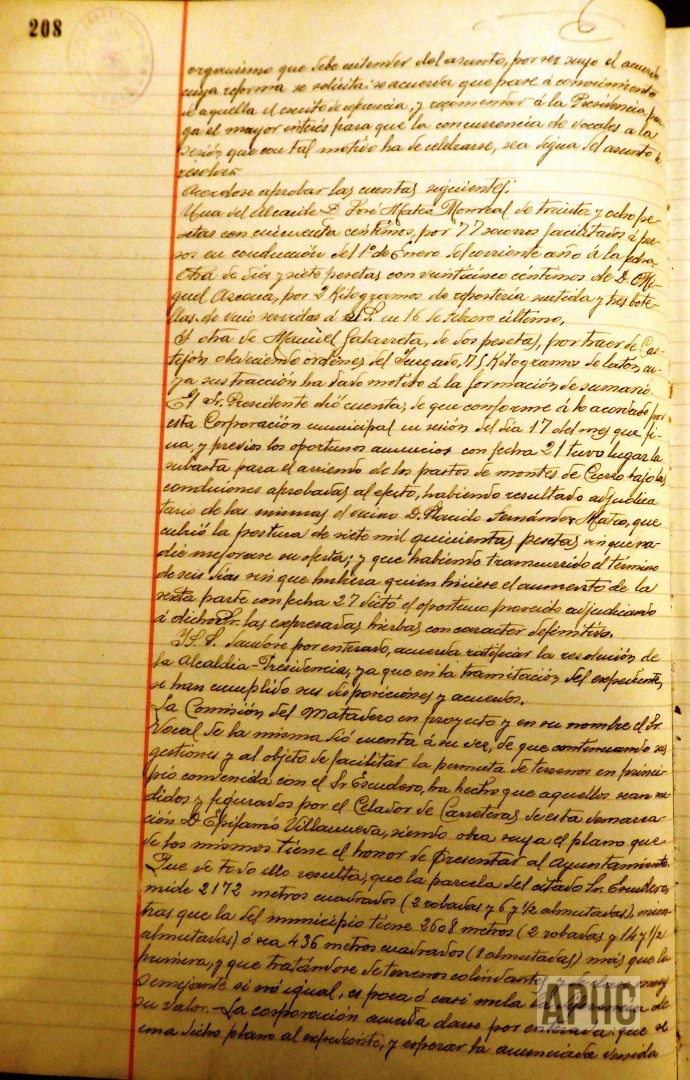 208
organismo que debe entender del asunto, por ser suyo el acuerdo
cuya reforma se solicita: se acuerda que pase á conocimiento
de aquella el escrito de referencia, y recomendar á la Presidencia pon
ga el mayor interés para que la concurrencia de vocales a la
sesión que con tal motivo ha de celebrarse, sea digna del asunto á
resolver.
Acordose aprobar las cuentas siguientes:
Una del Alcaide D. José Mateo Monreal de treinta y ocho pe-
setas con cincuenta céntimos, por 77 socorros facilitados á pre-
sos en conducción del 1º de Enero del corriente año á la fecha
Otra de diez y siete pesetas con veinticinco céntimos de D. Mi-
guel Azcona, por 2 Kilogramos de repostería surtida y tres bote-
llas de vino servidas á S.S. en 16 de Febrero último.
Y otra de Manuel Galarreta, de dos pesetas, por traer de Cas-
tejón obedeciendo ordenes del Juzgado, 75 Kilogramos de laton, cu-
ya sustracción ha dado motivo á la formación de sumario.
El Sr. Presidente dió cuenta, de que conforme á lo acordado por
esta Corporación municipal en sesión del dia 17 del mes que fi-
na, y previos los oportunos anuncios con fecha 21 tuvo lugar la
subasta para el arriendo de los pastos de montes de Cierzo bajo las
condiciones aprobadas al efecto, habiendo resultado adjudica
tario de las mismas el vecino D. Placido Fernández Mateo, que
cubrió la postura de siete mil quinientas pesetas sin que na-
die mejorase su oferta; y que habiendo transcurrido el término
de seis dias sin que hubiera quien hiciese el aumento de la
sexta parte con fecha 27 dictó el oportuno proveido adjudicando
á dicho Sr. las expresadas hierbas con caracter definitivo.
Y S.S. dandose por enterado, acuerda ratificar la resolución de
la Alcaldia-Presidencia, ya que en la tramitación del expediente,
se han cumplido sus disposiciones y acuerdos.
La Comisión del Matadero en proyecto y en su nombre el Sr.
Vocal de la misma dió cuenta á su vez, de que continuando sus
gestiones y al objeto de facilitar la permuta de terrenos en princi-
pio convenida con el Sr Escudero, ha hecho que aquellos sean me
didos y figurados por el Celador de Carreteras de esta demarca-
ción D. Epifanio Villanueva, siendo obra suya el plano que
de los mismos tiene el honor de presentar al Ayuntamiento.
Que de todo ello resulta, que la parcela del citado Sr. Escudero,
mide 2172 metros cuadrados (2 robadas y 6 y ½ almutadas), mien
tras que la del municipio tiene 2608 metros (2 robadas y 14 y ½
almutadas) ó sea 436 metros cuadrados (8 almutadas) más que la
primera, y que tratándose de terrenos colindantes y de clase muy
semejante si no igual, es poca ó casi nula la diferencia de
su valor. La corporación acuerda darse por enterada: que se
una dicho plano al expediente, y esperar la anunciada venida
APHC